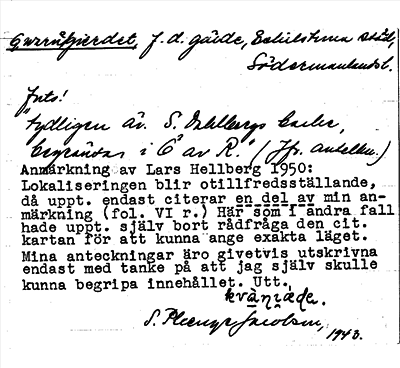 f. d. gärde, Eskilstuna stad,
Södermanland.
Jnts!
"Tydligen äv. S. Dahlbergs
begränsas i Ö av R." (Jfr. antekn.)
Anmärkning av Lars Hellberg 1950:
Lokaliseringen blir otillfredsställande,
då uppt. endast citerar en del av min an-
märkning (fol. VI r.) Här som i andra fall
hade uppt. själv bort rådfråga den cit.
kartan för att kunna ange exakta läget.
Mina anteckningar äro givetvis utskrivna
endast med tanke på att jag själv skulle
kunna begripa innehållet. Utt.
S. Jacobson,
1943.